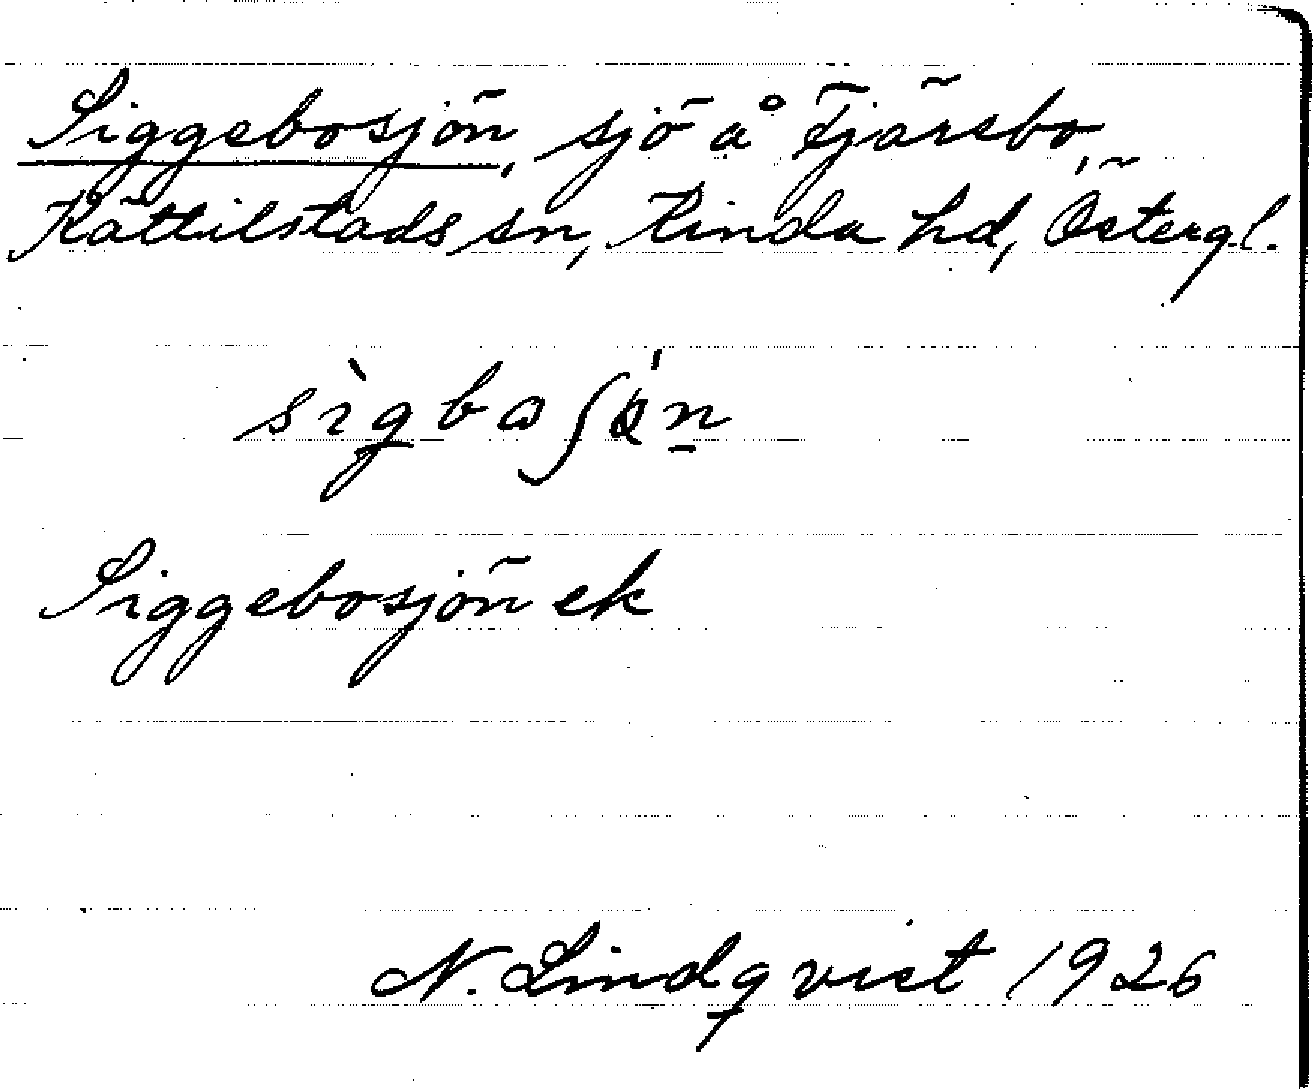 Siggebosjön, sjö å Fjärsbo,
Kättilstads sn, Kinda hd, Östergl.
Siggebosjön ek
N. Lindqvist 1926